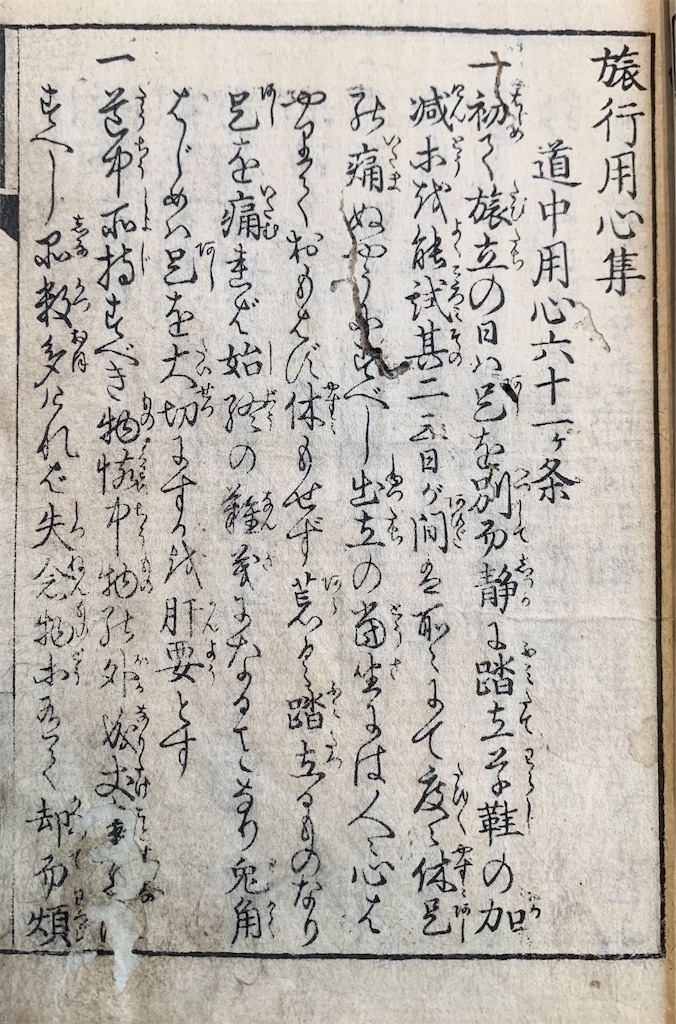 旅行用心集
道中用心六十一ヶ条
一初て旅立の日ハ足を別而静に踏立草鞋の加
減等を能試其二三日が間ハ所々にて度々休足
の痛ぬやうにすべし出立の當坐にハ人々心は
やりておもはず休もせず荒く踏立るものなり
足を痛れば始終の難義になること也兎角
はじめハ足を大切にするを肝要とす
一道中所持すべき物懐中物の外成丈事少に
すべし品数多ければ失念物等有て却而煩